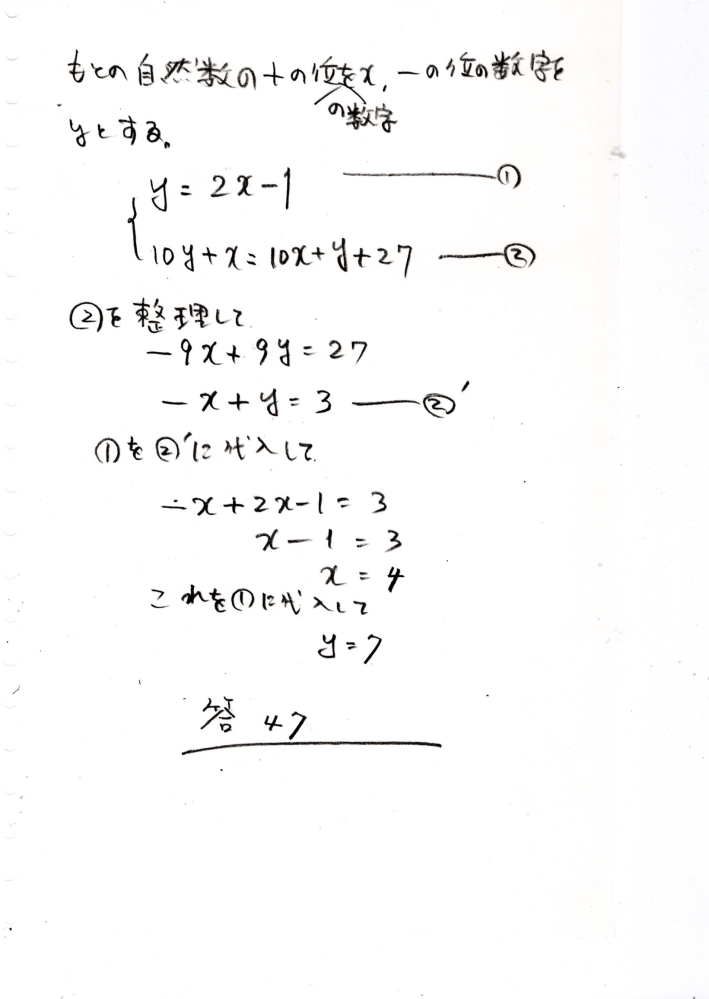 もとの自然数の十の位をx, 一の位の数字を
の数字
yとする。
y = 2x-1 ①
10y+x=10x+y+27 ②
②を整理して
-9x+9y=27
-x+y=3 ②'
①を②'に代入して
-x+2x-1=3
x-1=3
x=4
これを①に代入して
y=7
答 47